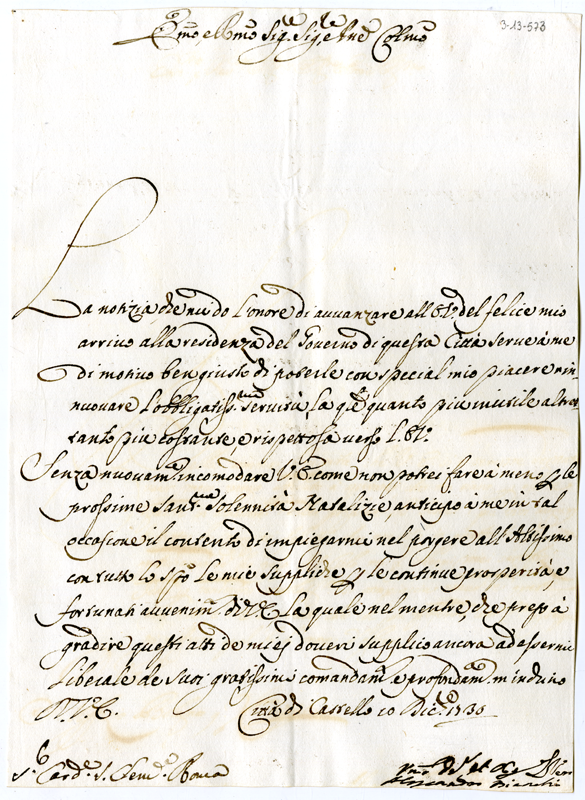 3-13-573
Em̃o, e Rm̃o Sig.re Sig.re e Pñe Colmo
La notizia, che mi do l'onore di avvanzare all'E.V. del felice mio
arrivo alla residenza del Governo di questa Città serve à me
di motivo ben giusto di poterle con special mio piacere rin-
nuovare l'obbligatiss.ma servitù, la q.le quanto più inutile, altret-
tanto più costante, e rispettosa verso l'E.V.
Senza nuovam.te incomodare V.E. come non potrei fare à meno p le
prossime Sant.me Solennità Natalizie, anticipo à me in tal
occasione il contento di impiegarmi nel porgere all'Altissimo
con tutto lo sp̃o le mie Suppliche p le continue prosperità, e
fortunati avvenim.ti di V.E. La quale nel mentre, che prego à
gradire questi atti de miei doveri supplico ancora ad essermi
liberale de suoi gratissimi comandam.ti e profondam.te m'inchino
Di V.E. Città di Castello 10 Dic.re 1730
S.r Card.e S. Clem.te Roma
Um̃o D.mo et
Bianchi